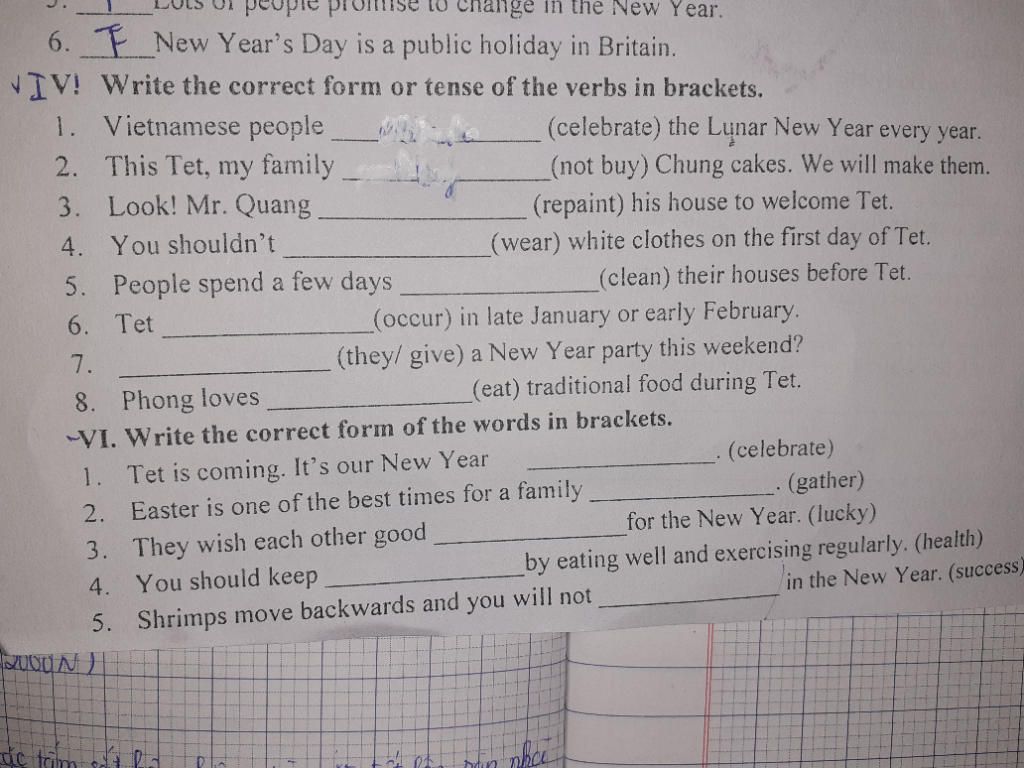 Lots of people promise to change in the New Year.
6. F New Year's Day is a public holiday in Britain.
IV! Write the correct form or tense of the verbs in brackets.
1. Vietnamese people ____________ (celebrate) the Lunar New Year every year.
2. This Tet, my family ____________ (not buy) Chung cakes. We will make them.
3. Look! Mr. Quang ____________ (repaint) his house to welcome Tet.
4. You shouldn't ____________ (wear) white clothes on the first day of Tet.
5. People spend a few days ____________ (clean) their houses before Tet.
6. Tet ____________ (occur) in late January or early February.
7. ____________ (they/ give) a New Year party this weekend?
8. Phong loves ____________ (eat) traditional food during Tet.
VI. Write the correct form of the words in brackets.
1. Tet is coming. It's our New Year ____________. (celebrate)
2. Easter is one of the best times for a family ____________. (gather)
3. They wish each other good ____________ for the New Year. (lucky)
4. You should keep ____________ by eating well and exercising regularly. (health)
5. Shrimps move backwards and you will not ____________ in the New Year. (success)